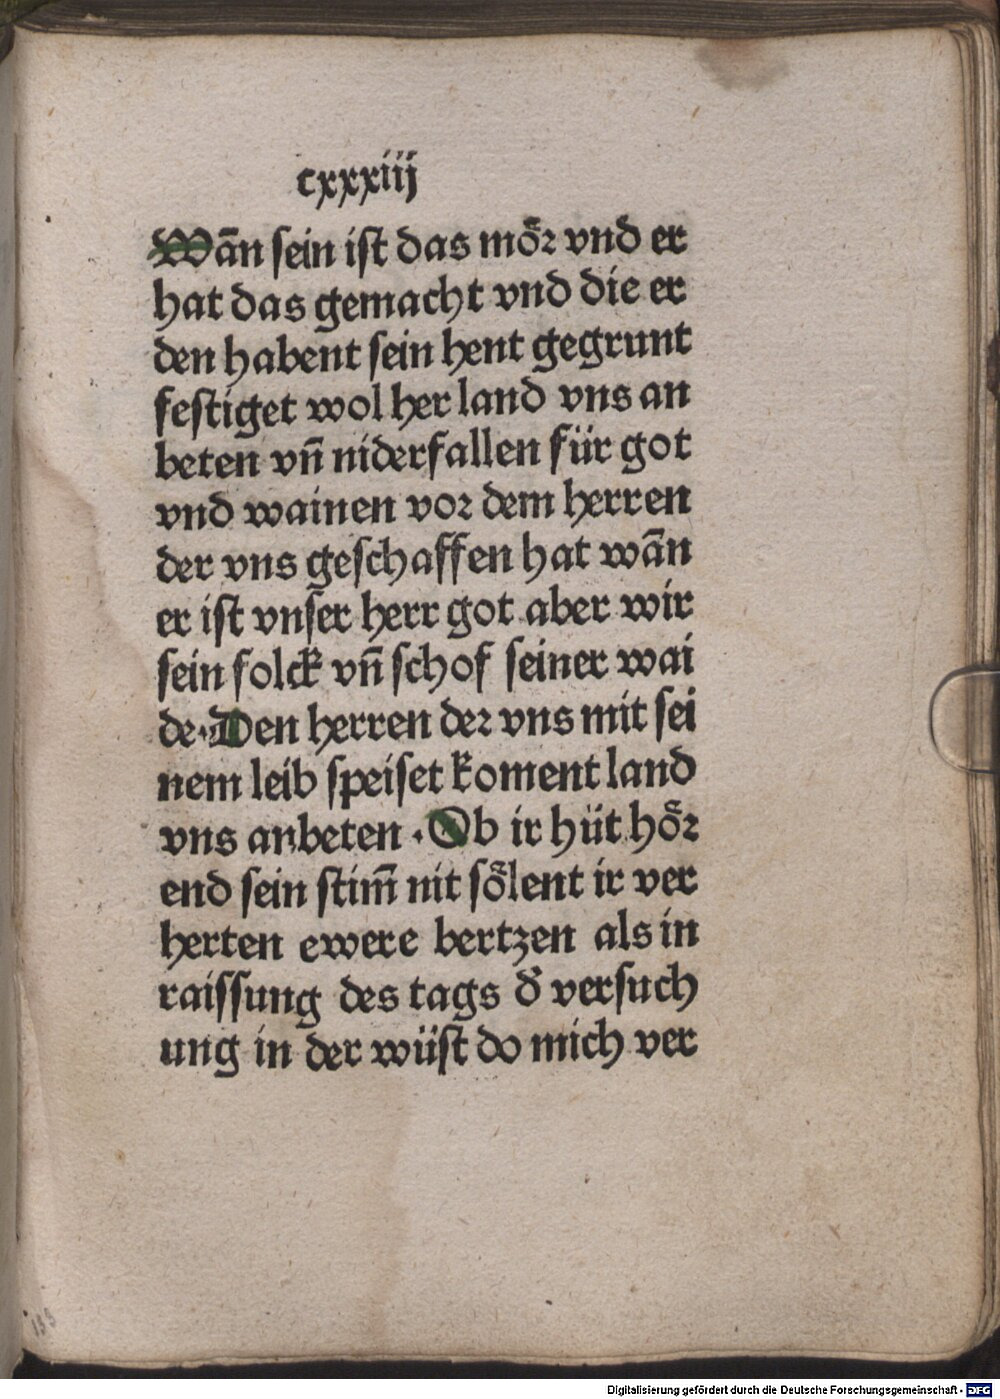 cxxxiij
Wān sein ist das moͤꝛ vnd er
hat das gemacht vnd die er
den habent sein hent gegrunt
festiget wol her land vns an
beten vn̄ niderfallen für got
vnd wainen voꝛ dem herren
der vns geschaffen hat wān
er ist vnser herr got aber wir
sein folck vn̄ schof seiner wai
de·Den herren deꝛ vns mit sei
nem leib speiset koment land
vns anbeten ·Ob ir hüt hoͤꝛ
end sein stim̄ nit soͤlent ir ver
herten ewere hertzen als in
raissung des tags d̕ versuch
ung in der wüst do mich ver
133
Digitalisierung gefördert durch die Deutsche Forschungsgemeinschaft - DFG